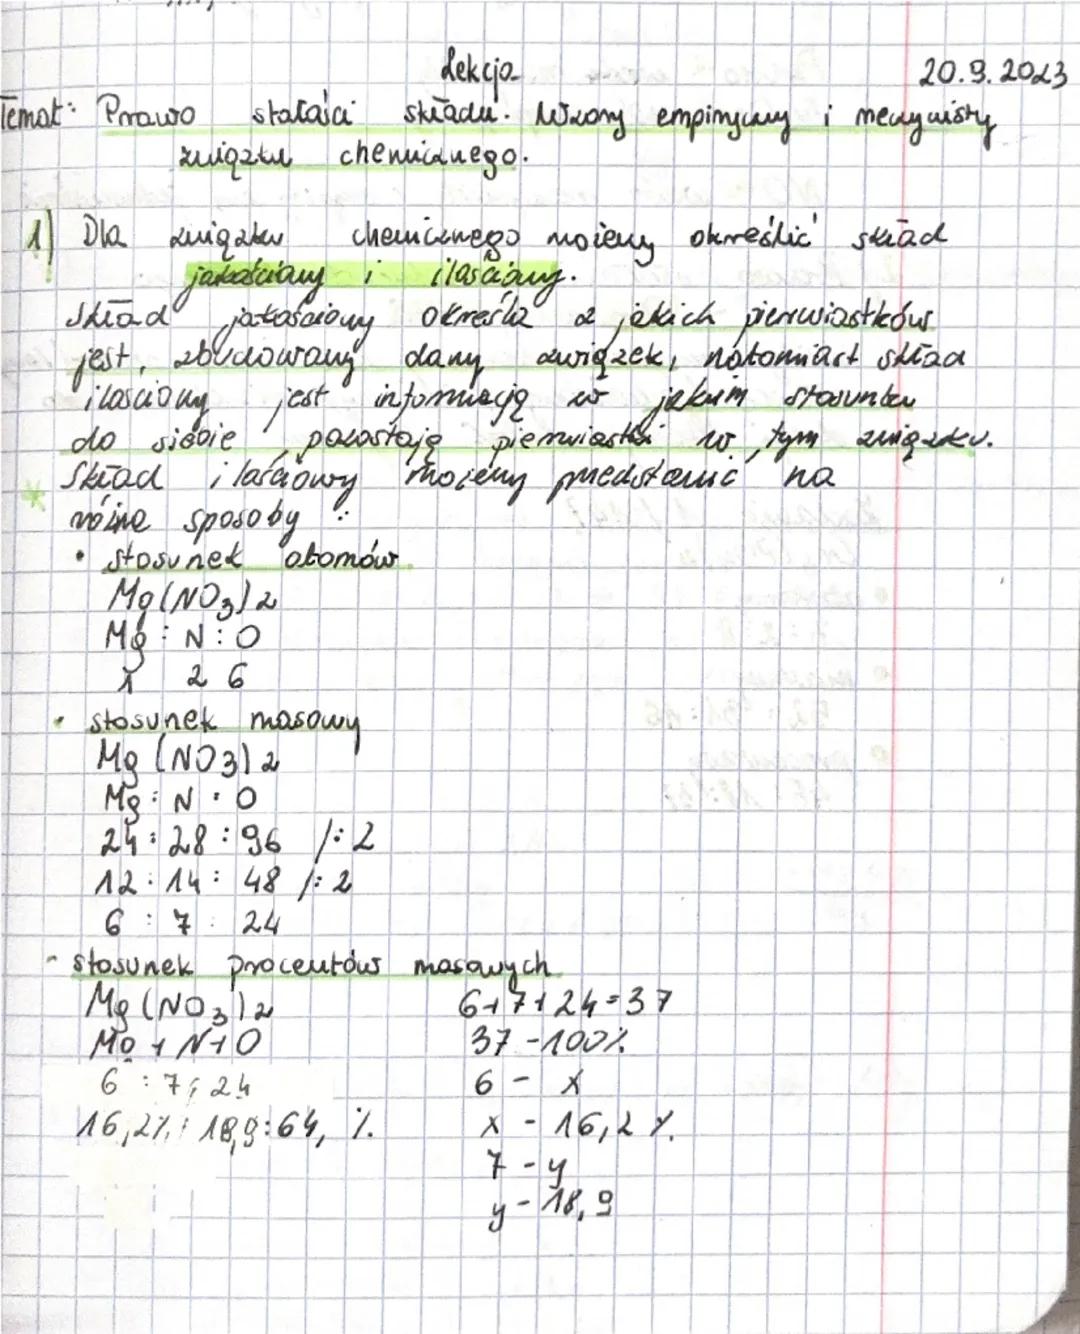 Lekcja 20.9.2023
Temat: Prawo stałości składu. Wzory empiryczny i rzeczywisty
związku chemicznego.
1) Dla związku chemicznego możemy określić skład
jakościowy i ilościowy.
Skład jakościowy określa z jakich pierwiastków
jest zbudowany dany związek, natomiast skład
ilościowy jest informacją w jakim stosunku
do siebie pozostają pierwiastki w tym związku.
* Skład ilościowy możemy przedstawić na
różne sposoby:
• stosunek atomów
Mg(NO3)2
Mg : N : O
1 2 6
• stosunek masowy
Mg (NO3)2
Mg : N : O
24 : 28 : 96 /: 2
12 : 14 : 48 /: 2
6 : 7 : 24
- stosunek procentów masowych
Mg (NO3)2 6+7+24=37
Mg + N + O 37 - 100%
6 : 7 : 24 6 - x
16,2% : 18,9 : 64, % x - 16,2 %.
7 - y
y - 18,9